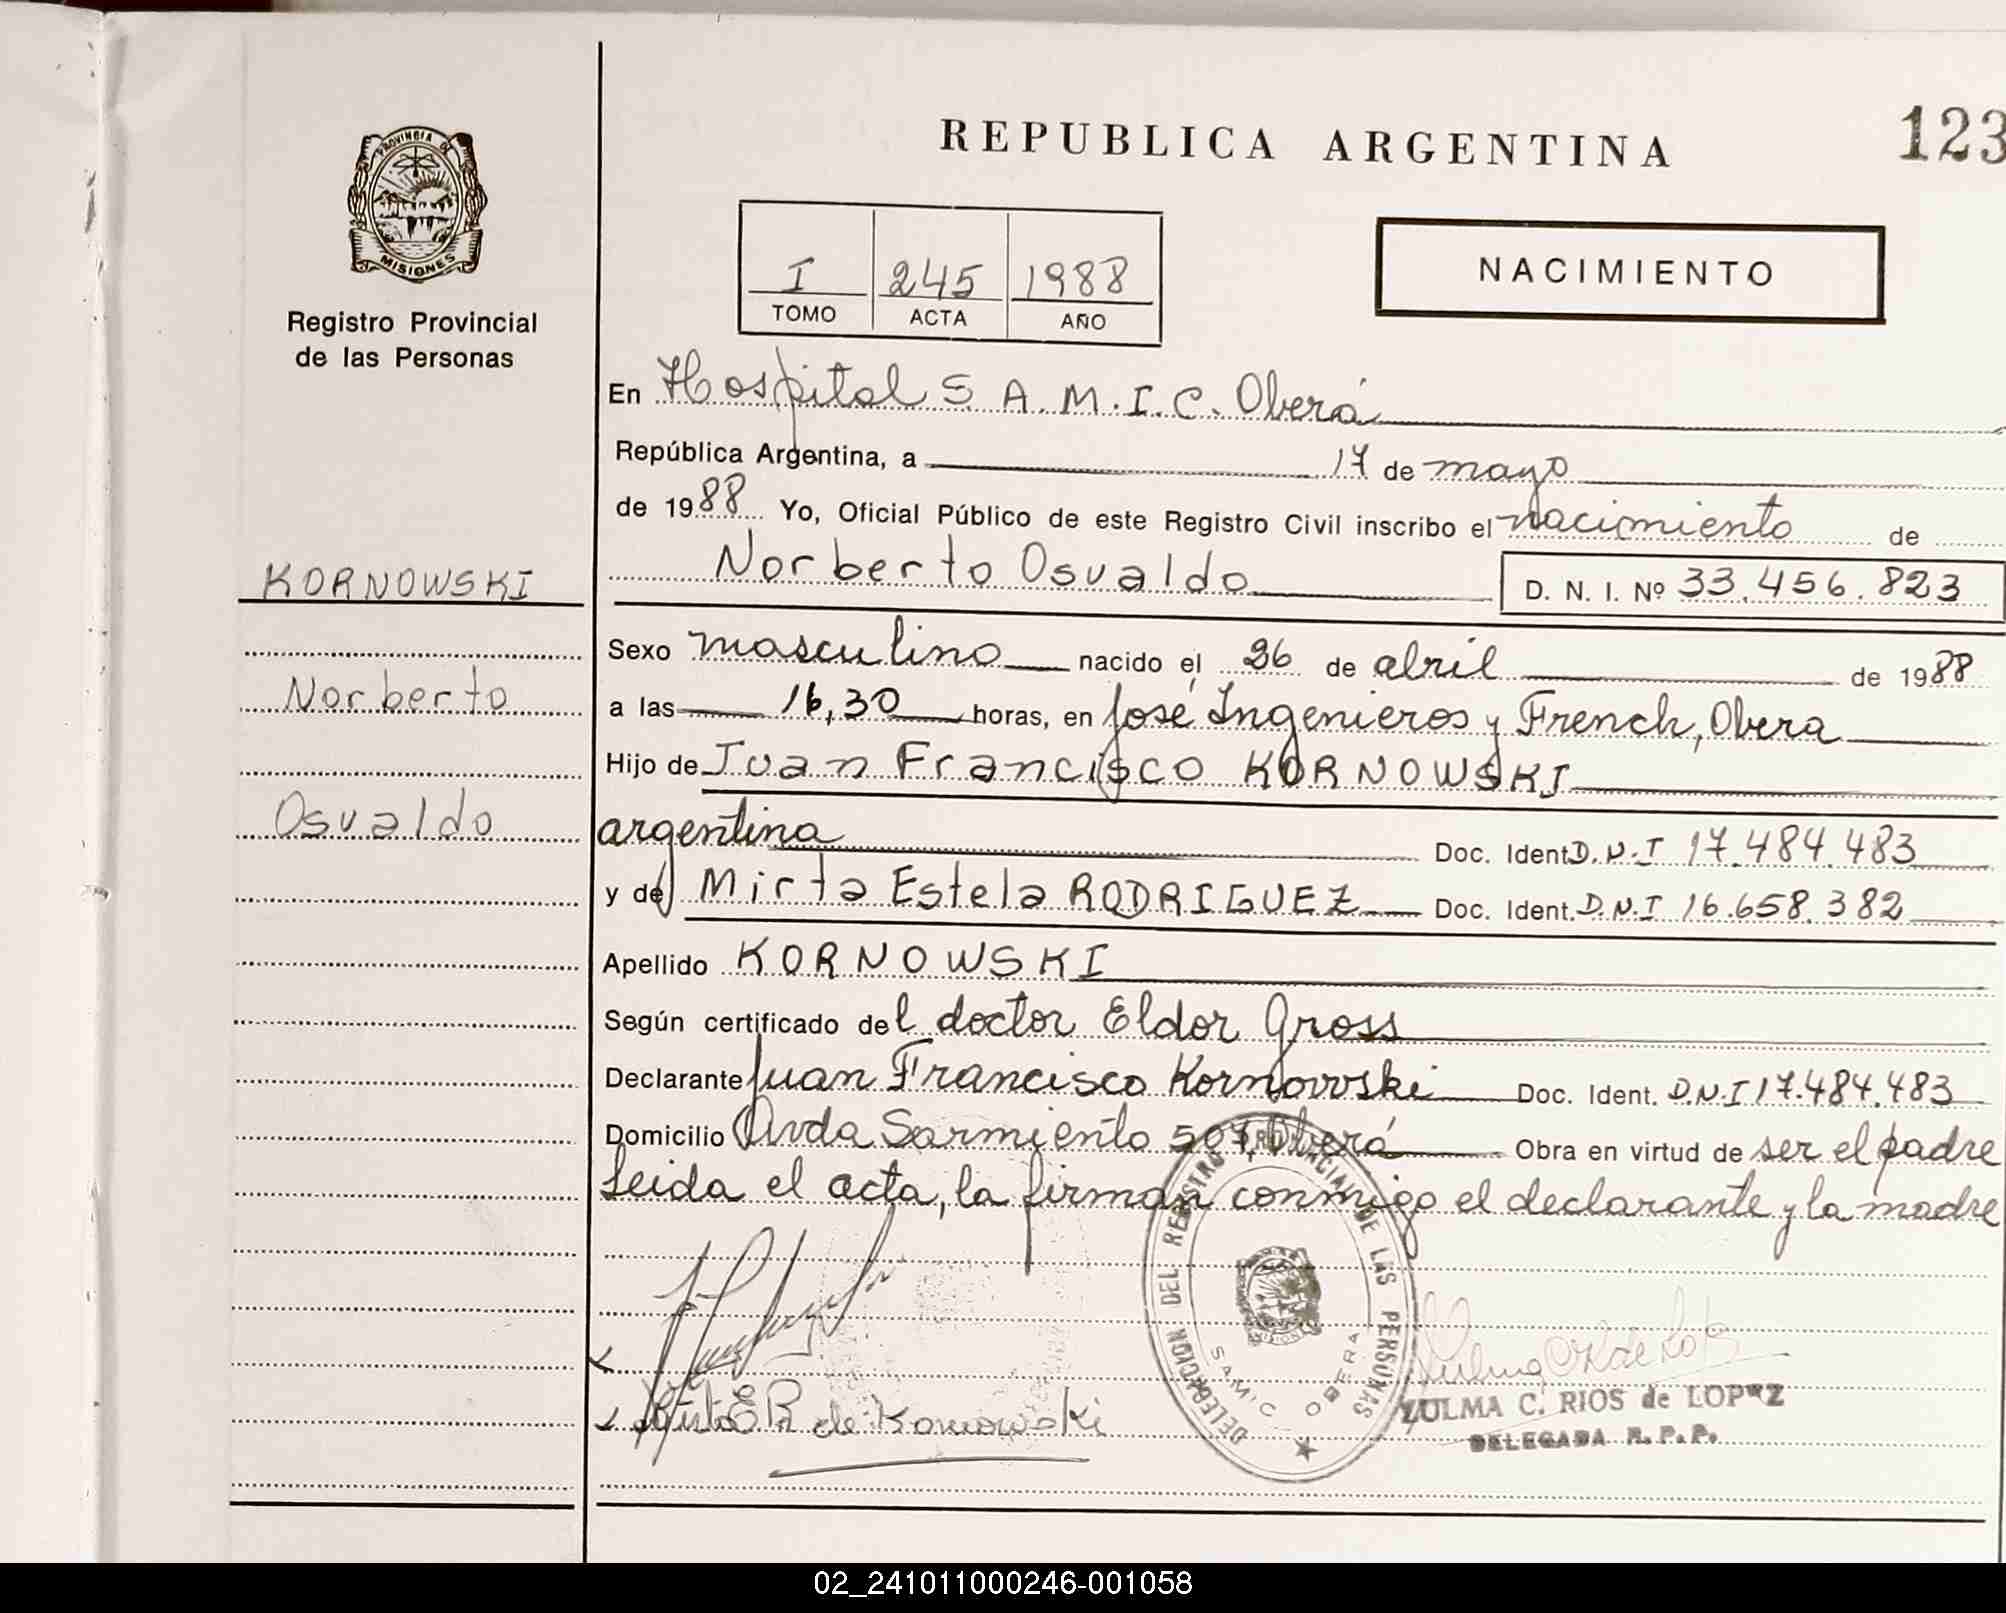 REPUBLICA ARGENTINA
123
PROVINCIA DE
MISIONES
Registro Provincial
de las Personas
I 245 1988
TOMO ACTA AÑO
NACIMIENTO
En Hospital S.A.M.I.C. Oberá
República Argentina, a 17 de mayo
de 1988 Yo, Oficial Público de este Registro Civil inscribo el nacimiento de
Norberto Osvaldo D. N. I. Nº 33.456.823
KORNOWSKI
Norberto
Osvaldo
Sexo masculino nacido el 26 de abril de 1988
a las 16,30 horas, en José Ingenieros y French, Obera
Hijo de Juan Francisco KORNOWSKI
argentina Doc. Ident. D.N.I 17.484.483
y de Mirta Estela RODRIGUEZ Doc. Ident. D.N.I 16.658.382
Apellido KORNOWSKI
Según certificado del doctor Eldor Gross
Declarante Juan Francisco Kornowski Doc. Ident. D.N.I 17.484.483
Domicilio Avda Sarmiento 507, Oberá Obra en virtud de ser el padre
Leida el acta, la firman conmigo el declarante y la madre
DELEGACION DEL REGISTRO PROVINCIAL DE LAS PERSONAS
SAMIC OBERA
MISIONES
E R de Kornowski
ZULMA C. RIOS de LOPEZ
DELEGADA R.P.P.
02_241011000246-001058